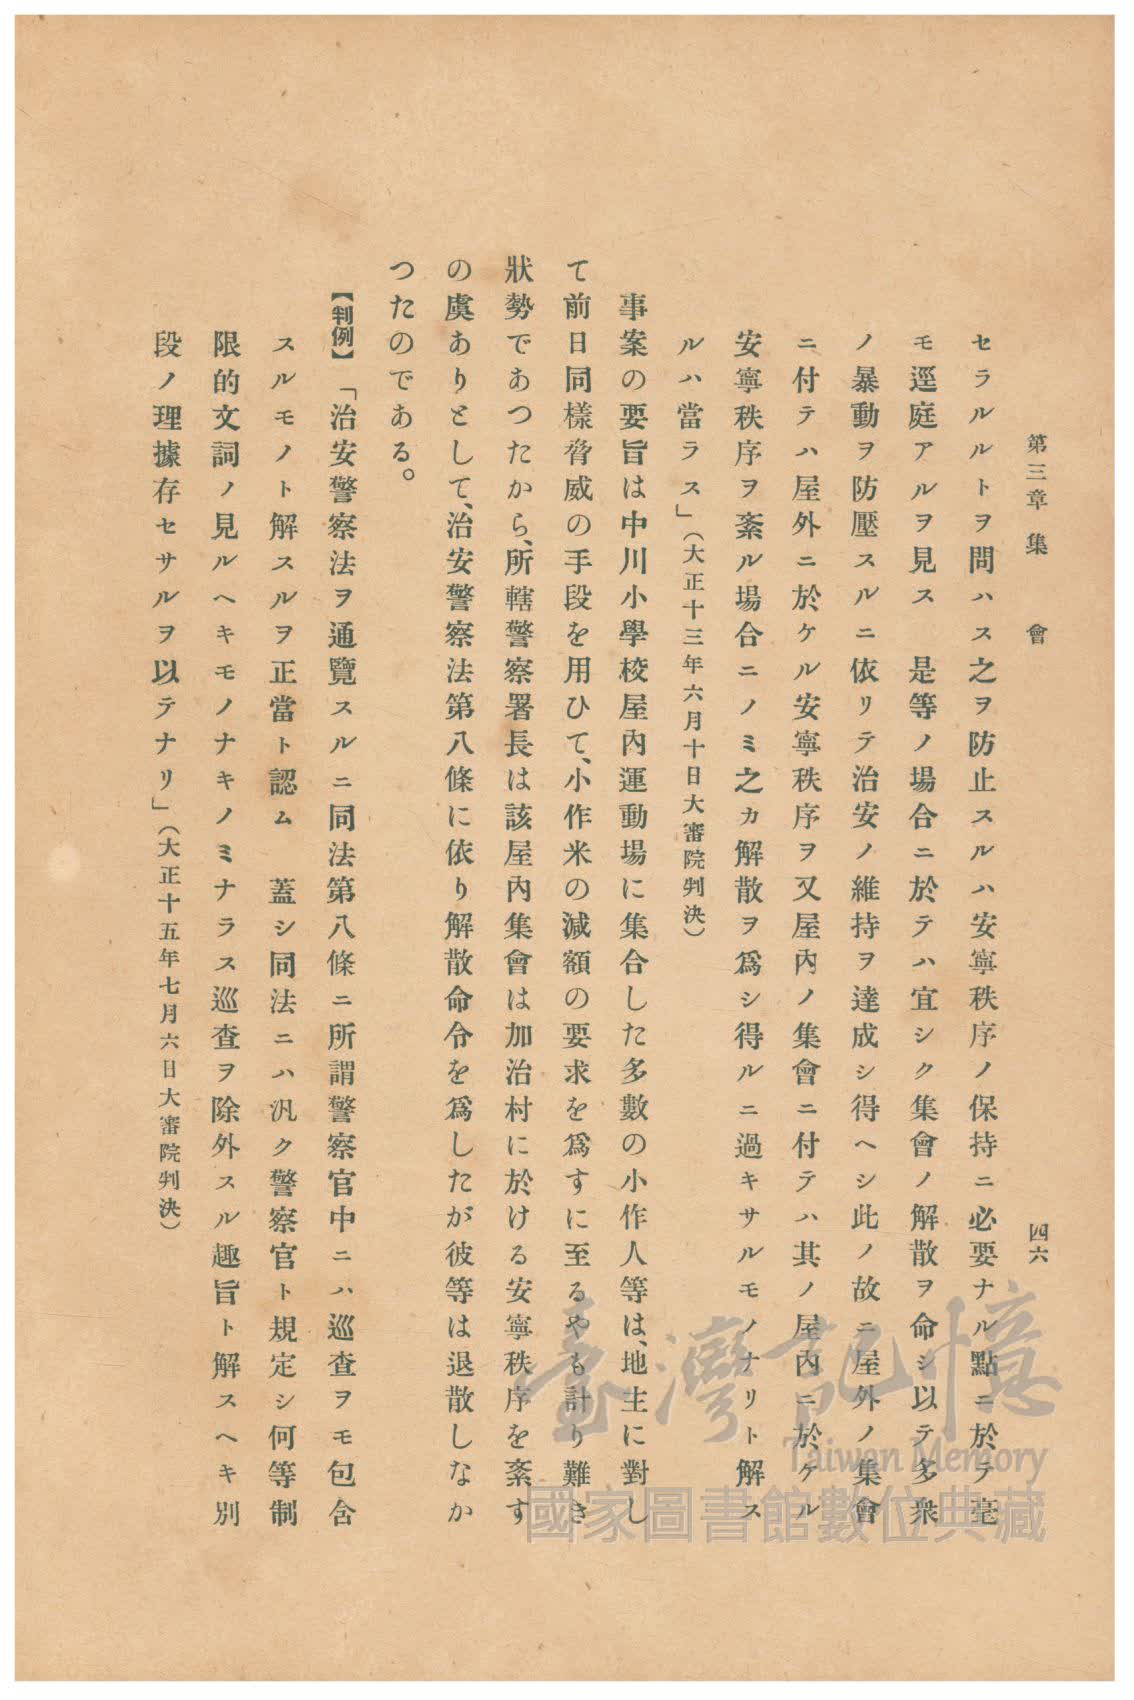 第三章 集 會 四六
セラルルトヲ問ハス之ヲ防止スルハ安寧秩序ノ保持ニ必要ナル點ニ於テ毫
モ逕庭アルヲ見ス 是等ノ場合ニ於テハ宜シク集會ノ解散ヲ命シ以テ多衆
ノ暴動ヲ防壓スルニ依リテ治安ノ維持ヲ達成シ得ヘシ此ノ故ニ屋外ノ集會
ニ付テハ屋外ニ於ケル安寧秩序ヲ又屋內ノ集會ニ付テハ其ノ屋內ニ於ケル
安寧秩序ヲ紊ル場合ニノミ之カ解散ヲ爲シ得ルニ過キサルモノナリト解ス
ルハ當ラス」(大正十三年六月十日大審院判決)
事案の要旨は中川小學校屋內運動場に集合した多數の小作人等は、地主に對し
て前日同樣脅威の手段を用ひて、小作米の減額の要求を爲すに至るやも計り難き
狀勢であつたから、所轄警察署長は該屋內集會は加治村に於ける安寧秩序を紊す
の虞ありとして、治安警察法第八條に依り解散命令を爲したが彼等は退散しなか
つたのである。
【判例】「治安警察法ヲ通覽スルニ同法第八條ニ所謂警察官中ニハ巡査ヲモ包含
スルモノト解スルヲ正當ト認ム 蓋シ同法ニハ汎ク警察官ト規定シ何等制
限的文詞ノ見ルヘキモノナキノミナラス巡査ヲ除外スル趣旨ト解スヘキ別
段ノ理據存セサルヲ以テナリ」(大正十五年七月六日大審院判決)
臺灣記憶
Taiwan Memory
國家圖書館數位典藏